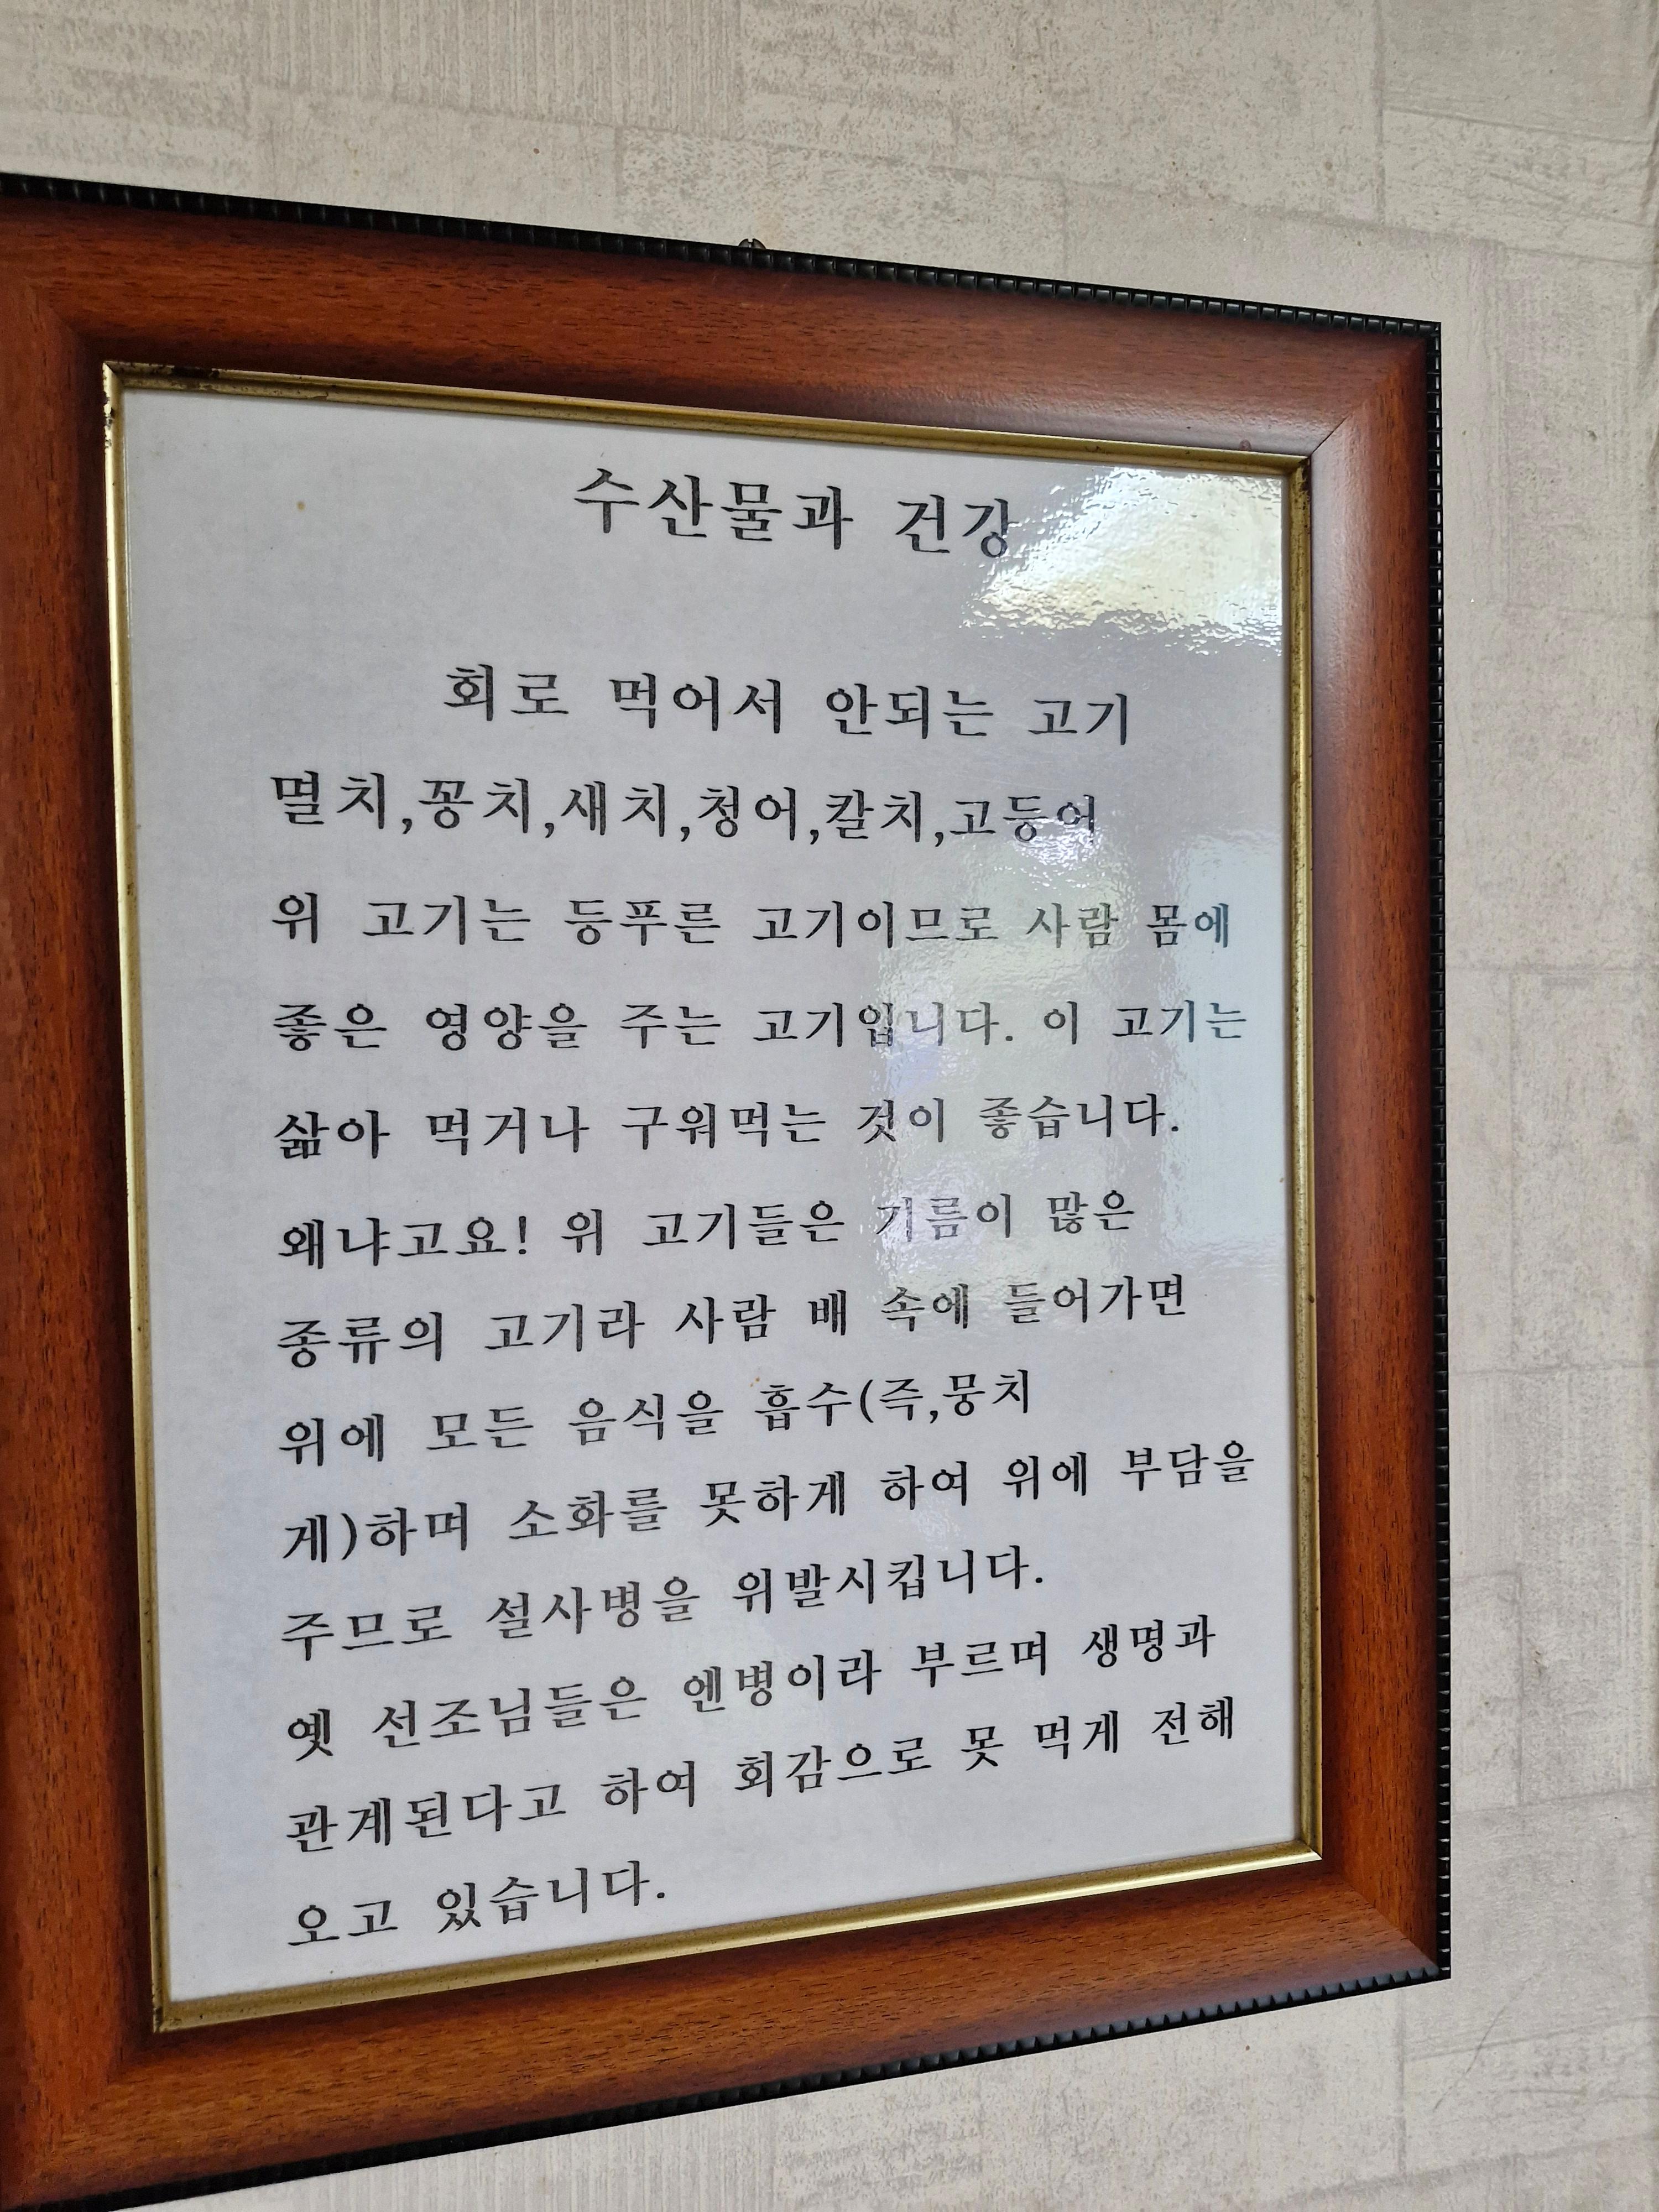 수산물과 건강
회로 먹어서 안되는 고기
멸치,꽁치,새치,청어,칼치,고등어
위 고기는 등푸른 고기이므로 사람 몸에
좋은 영양을 주는 고기입니다. 이 고기는
삶아 먹거나 구워먹는 것이 좋습니다.
왜냐고요! 위 고기들은 기름이 많은
종류의 고기라 사람 배 속에 들어가면
위에 모든 음식을 흡수(즉,뭉치
게)하며 소화를 못하게 하여 위에 부담을
주므로 설사병을 위발시킵니다.
옛 선조님들은 엔병이라 부르며 생명과
관계된다고 하여 회감으로 못 먹게 전해
오고 있습니다.